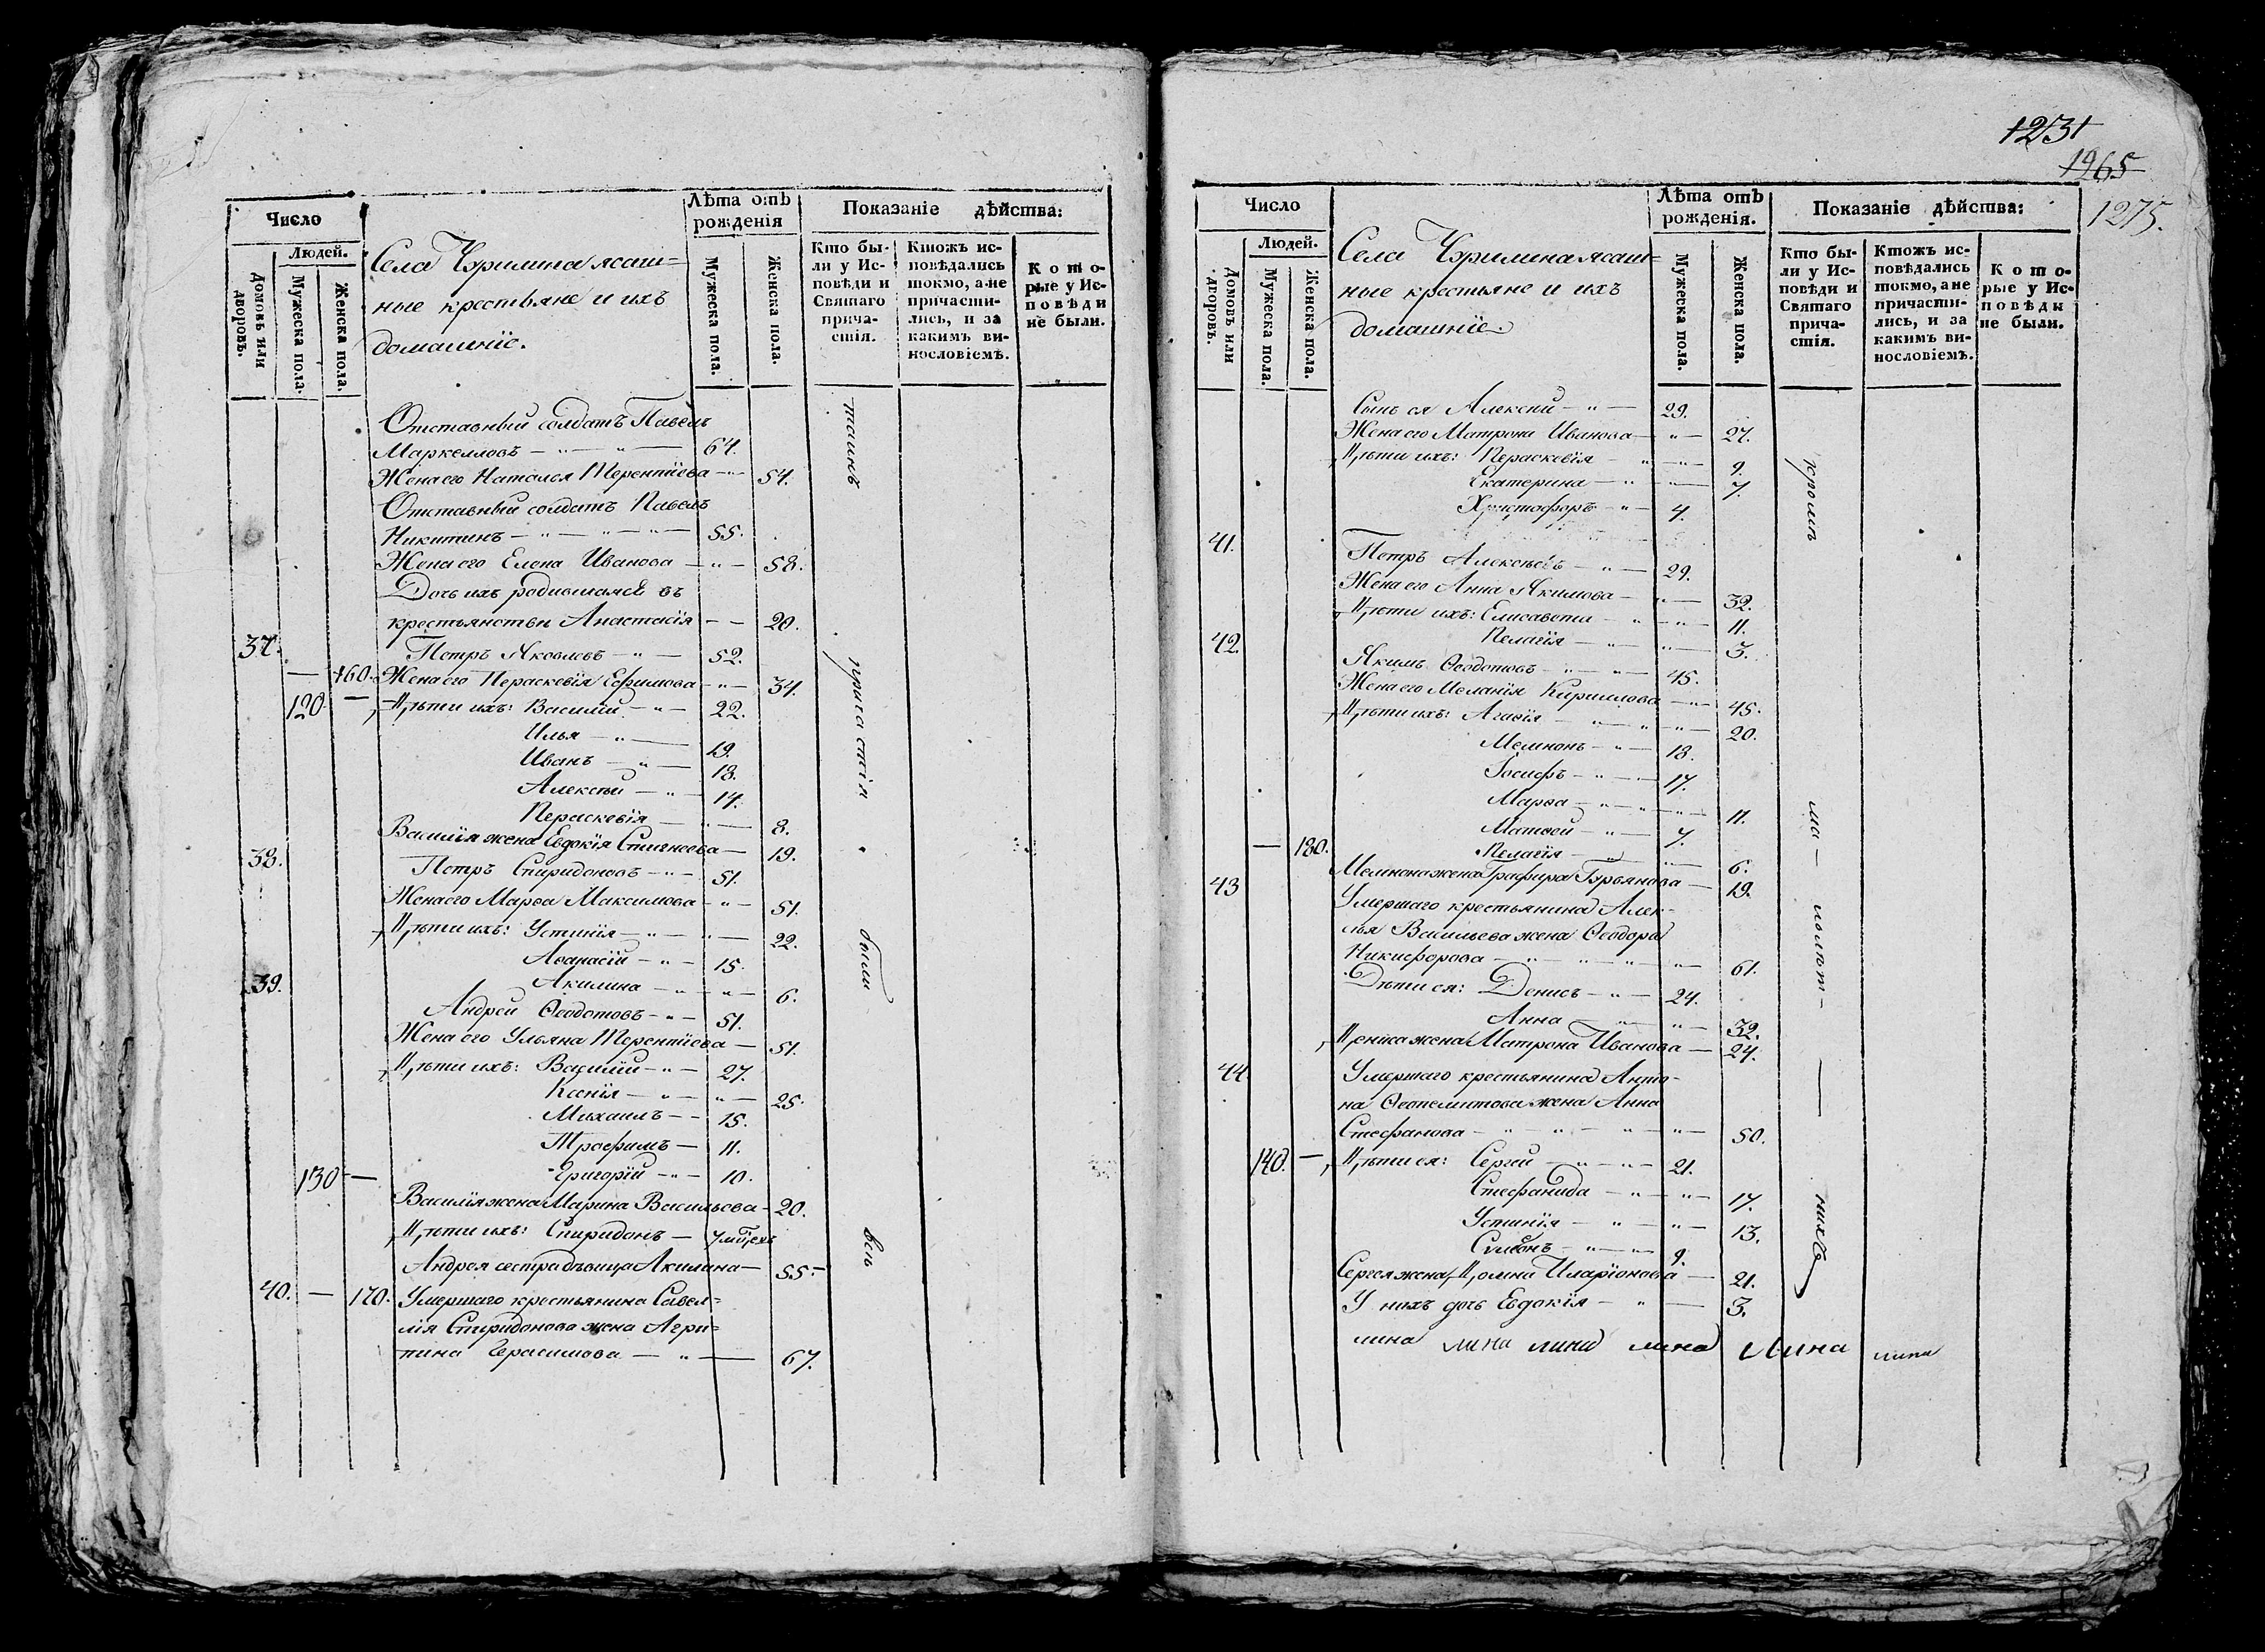 Число
Людей.
Домовъ или дворовъ.
Мужеска пола.
Женска пола.
Села Чурилина ясаш=
ные крестьяне и ихъ
домашніе.
Лѣта отъ рожденія
Мужеска пола.
Женска пола.
Показаніе дѣйства:
Кто бы-
ли у Ис-
повѣди и
Святаго
прича-
стія.
Ктожъ ис-
повѣдались
токмо, а не
причасти-
лись, и за
какимъ ви-
нословіемъ.
Кото-
рые у Ис-
повѣди
не были.
Отставный солдатъ Павелъ
Маркелловъ — 64.
Жена его Наталья Терентіева — 54.
Отставный солдатъ Павелъ
Никитинъ — 55.
Жена его Елена Иванова — 58.
Дочь ихъ родившаяся въ
крестьянствѣ Анастасія — 20.
37. Петръ Яковлевъ — 52.
— 160. Жена его Параскевія Ефимова — 34.
120. — Дѣти ихъ: Василій — 22.
Илья — 19.
Иванъ — 18.
Алексѣй — 14.
Параскевія — 8.
Василія жена Евдокія — 19.
38. Петръ Спиридоновъ — 51.
Жена его Марѳа Максимова — 51.
Дѣти ихъ: Устинія — 22.
Аѳанасій — 15.
Акилина — 6.
39. Андрей Ѳеодотовъ — 51.
Жена его Ульяна Терентіева — 51.
Дѣти ихъ: Василій — 27.
Ксенія — 25.
Михаилъ — 15.
Трофимъ — 11.
130 — Григорій — 10.
Василія жена Марина Васильева — 20.
Дѣти ихъ: Спиридонъ —
Андрея сестра дѣвица Акилина — 55.
40. — 170. Умершаго крестьянина Савел=
лія Спиридонова жена Агри=
пина Герасимова — 67.
причастія
были
всѣ
1231
1965
1275.
Число
Людей.
Домовъ или дворовъ.
Мужеска пола.
Женска пола.
Села Чурилина ясаш=
ные крестьяне и ихъ
домашніе.
Лѣта отъ рожденія.
Мужеска пола.
Женска пола.
Показаніе дѣйства:
Кто бы-
ли у Ис-
повѣди и
Святаго
прича-
стія.
Ктожъ ис-
повѣдались
токмо, а не
причасти-
лись, и за
какимъ ви-
нословіемъ.
Кото-
рые у Ис-
повѣды
не были.
Сынъ ея Алексѣй — 29.
Жена его Матрона Иванова — 27.
Дѣти ихъ: Параскевія — 9.
Екатерина — 7.
Христофоръ — 4.
41. Петръ Алексѣевъ — 29.
Жена его Анна Якимова — 32.
Дѣти ихъ: Елисавета — 11.
Пелагія — 3.
42. Якимъ Ѳеодотовъ — 45.
Жена его Меланія Кириллова — 45.
Дѣти ихъ: Агаѳія — 20.
Мемнонъ — 18.
Іосифъ — 17.
Марѳа — 11.
Матвей — 7.
— 180. Пелагія — 6.
Мемнона жена Графира Гурьянова — 19.
43 Умершаго крестьянина Алек-
сѣя Васильева жена Ѳеодора
Никифорова — 61.
Дѣти ея: Денисъ — 24.
Анна — 32.
Дениса жена Матрона Иванова — 24.
44. Умершаго крестьянина Анто-
на жена Анна
Стефанова — 50.
140. — Дѣти ея: Сергей — 21.
Стефанида — 17.
Устинія — 13.
Симеонъ — 9.
Сергея жена Домна Иларіонова — 21.
У нихъ дочь Евдокія — 3.
кромѣ
ма-
лолѣт-
нихъ
лина лина лина лина лина лина